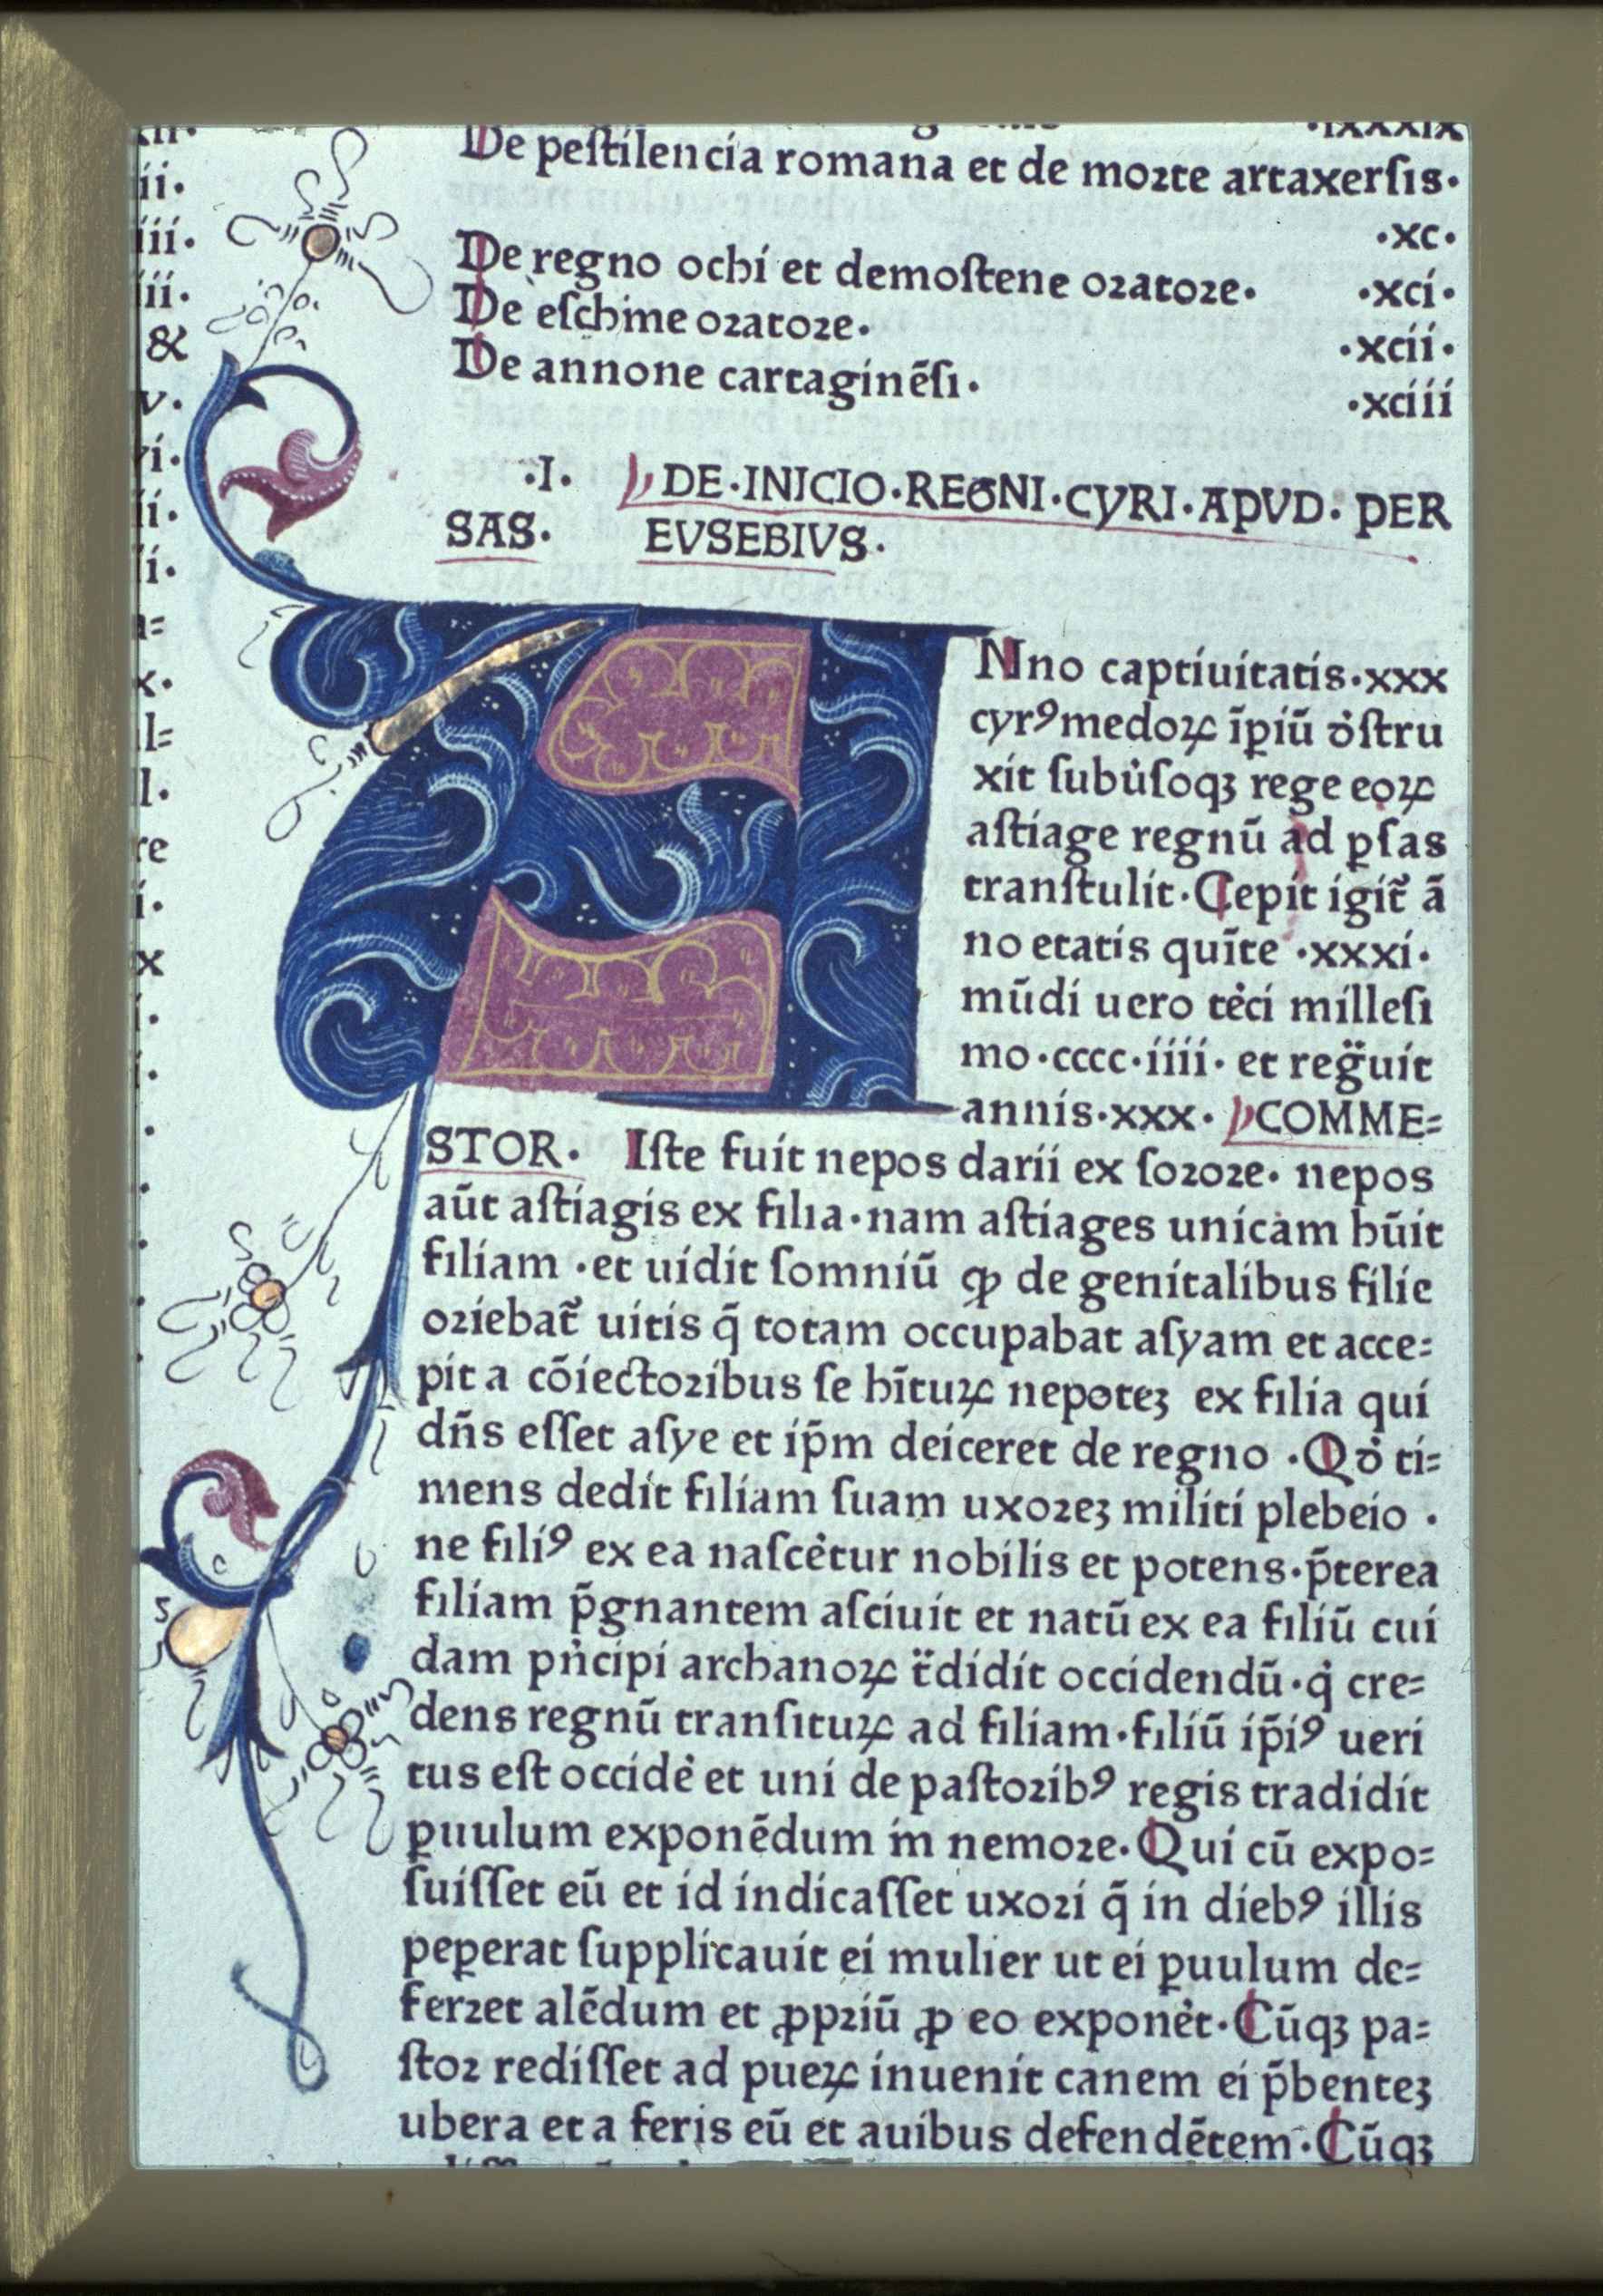 ·lxxxix
De peſtilencia romana et de moꝛte artaxerſis·
·xc·
De regno ochi et demoſtene oꝛatoꝛe· ·xci·
De eſchime oꝛatoꝛe· ·xcii·
De annone cartaginēſi· ·xciii
·I· DE·INICIO·REGNI·CYRI·APVD·PER
SAS· EVSEBIVS·
ANno captiuitatis·xxx
cyrꝰ medoꝝ īꝑiū ďſtru
xit ſubu̓ſoqꝫ rege eoꝝ
aſtiage regnū ad ꝑſas
tranſtulit·Cepit igit᷑ ā
no etatis quīte ·xxxi·
mūdi uero te̓ci milleſi
mo·cccc·iiii· et reg̈uit
annis·xxx· COMME=
STOR· Iſte fuit nepos darii ex ſoꝛoꝛe· nepos
aūt aſtiagis ex filia·nam aſtiages unicam hūit
filiam ·et uidit ſomniū ꝙ de genitalibus filie
oꝛiebat᷑ uitis q̄ totam occupabat aſyam et acce=
pit a cōiectoꝛibus ſe hītuꝝ nepoteꝫ ex filia qui
dn̄s eſſet aſye et ip̄m deiceret de regno ·Qď ti=
mens dedit filiam ſuam uxoꝛeꝫ militi plebeio ·
ne filiꝰ ex ea naſce̓tur nobilis et potens·p̄terea
filiam p̄gnantem aſciuit et natū ex ea filiū cui
dam pn̓cipi archanoꝝ t̎didit occidendū·q̓ cre=
dens regnū tranſituꝝ ad filiam·filiū ip̄iꝰ ueri
tus eſt occide̓ et uni de paſtoꝛibꝰ regis tradidit
ꝑuulum exponēdum in nemoꝛe·Qui cū expo=
ſuiſſet eū et id indicaſſet uxoꝛi q̄ in diebꝰ illis
peꝑerat ſupplicauit ei mulier ut ei ꝑuulum de=
ferꝛet alēdum et ꝓpꝛiū ꝓ eo expone̓t·Cūqꝫ pa=
ſtoꝛ rediſſet ad pueꝝ inuenit canem ei p̄benteꝫ
ubera et a feris eū et auibus defendētem·Cūqꝫ